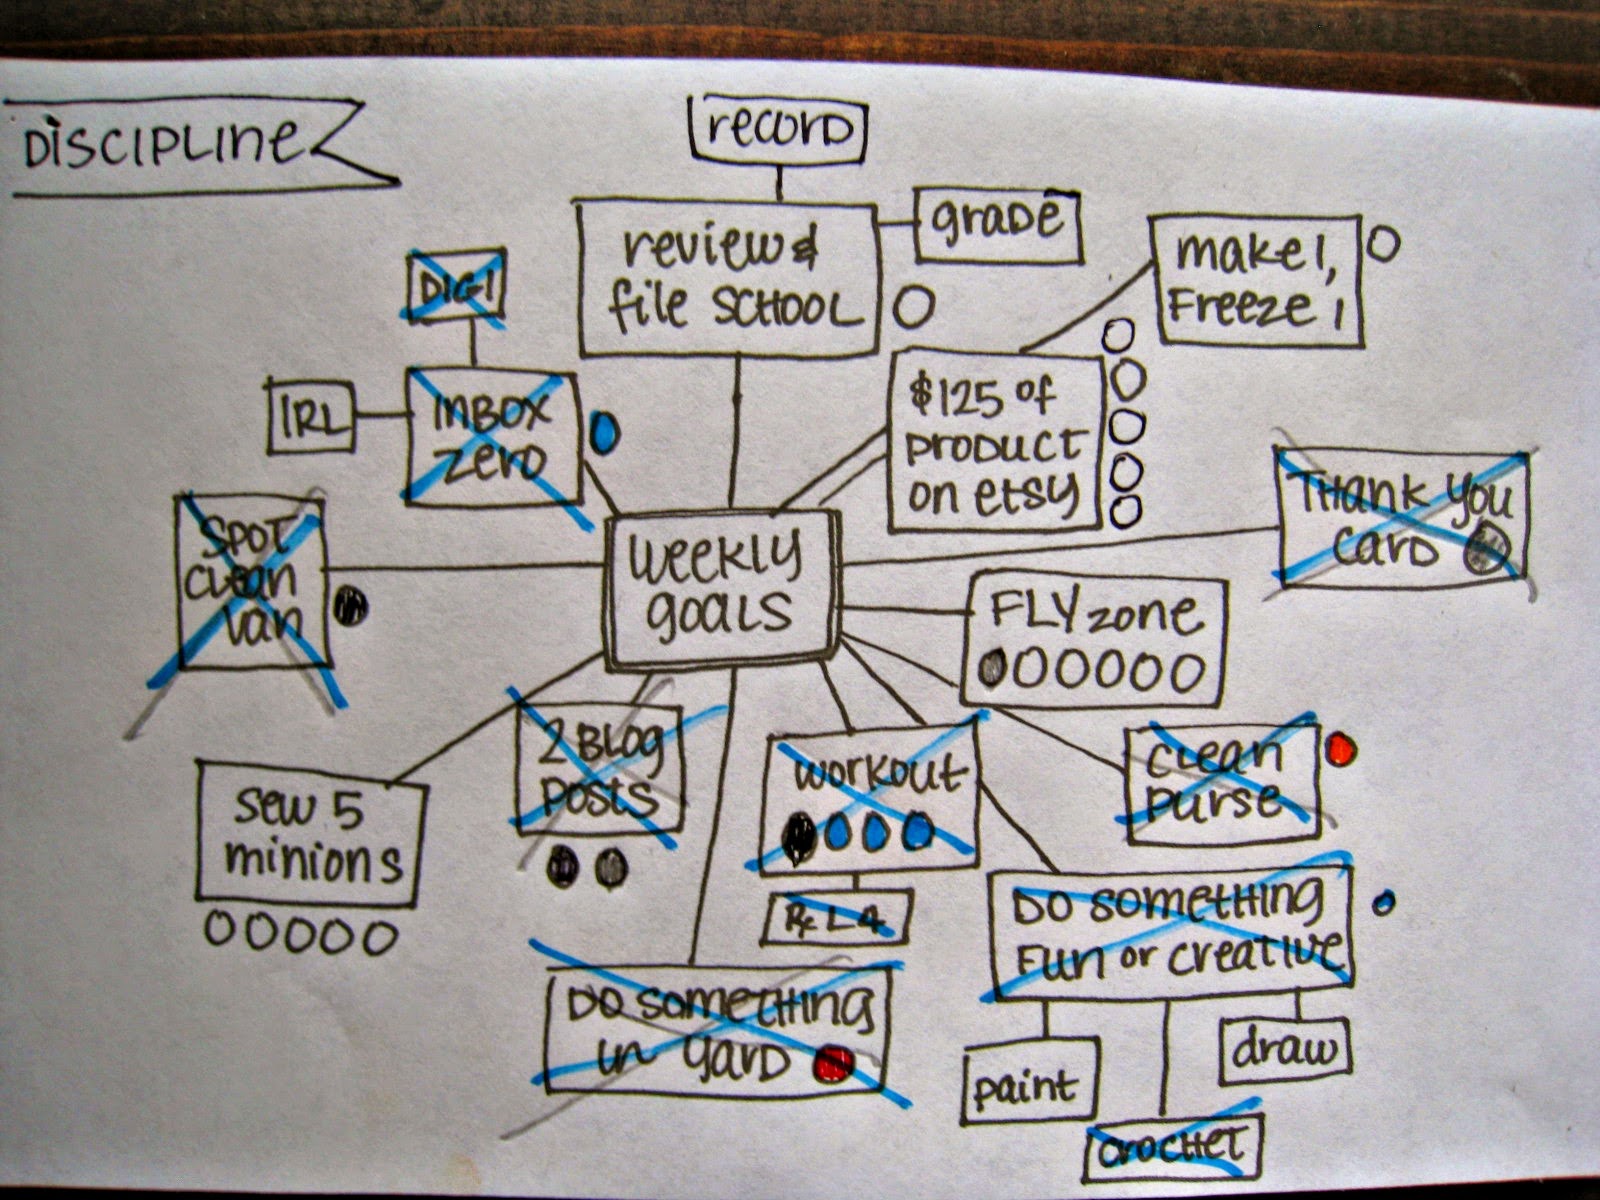 DISCIPLINE
record
review &
file SCHOOL
grade
make 1,
Freeze 1
DIGI
IRL
INBOX
zero
$125 of
product
on etsy
THANK YOU
card
SPOT
clean
van
weekly
goals
FLY zone
sew 5
minions
2 BLOG
posts
workout
L4
clean
purse
Do something
Fun or creative
Do something
in yard
paint
draw
crochet